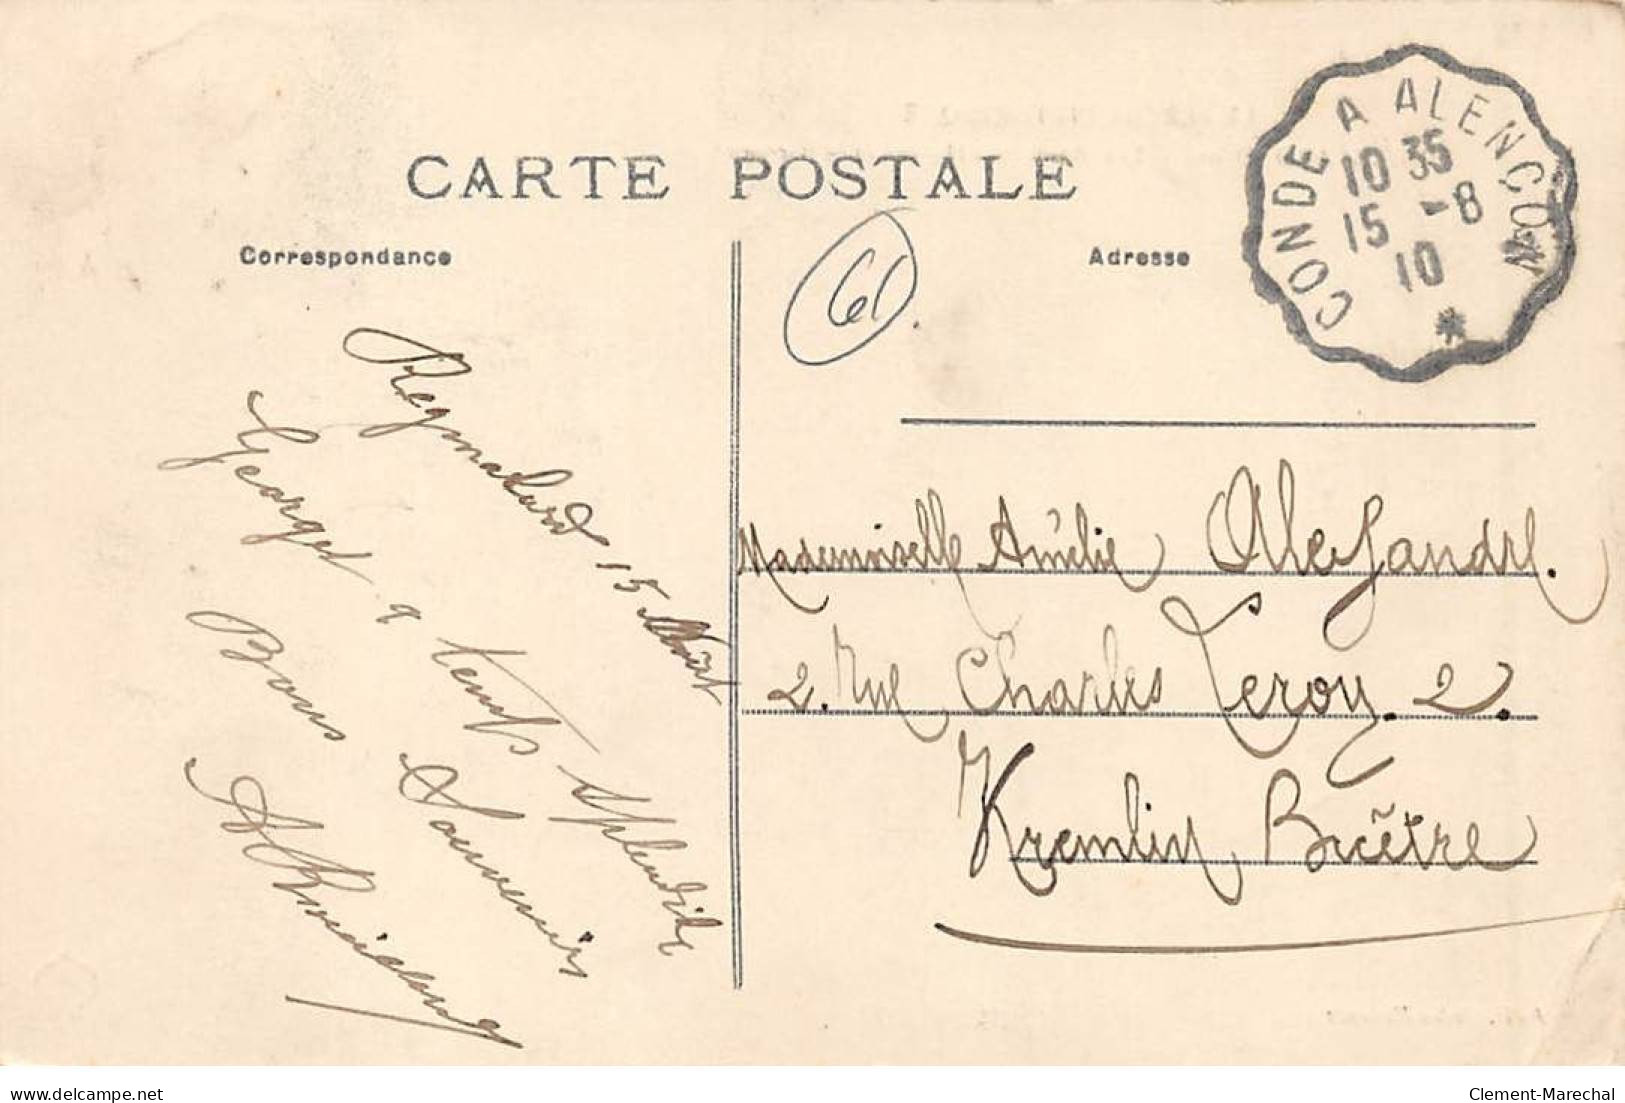 CARTE POSTALE
Correspondance
Adresse
61
CONDE A ALENÇON
10 35
15 -8
10
*
Regmalard 15 Août
temps splendide
Bons Souvenirs
Mademoiselle Amélie Alexandre.
2. Rue Charles Leroy. 2.
Kremlin Bicêtre
delcampe.net
Clement-Marechal